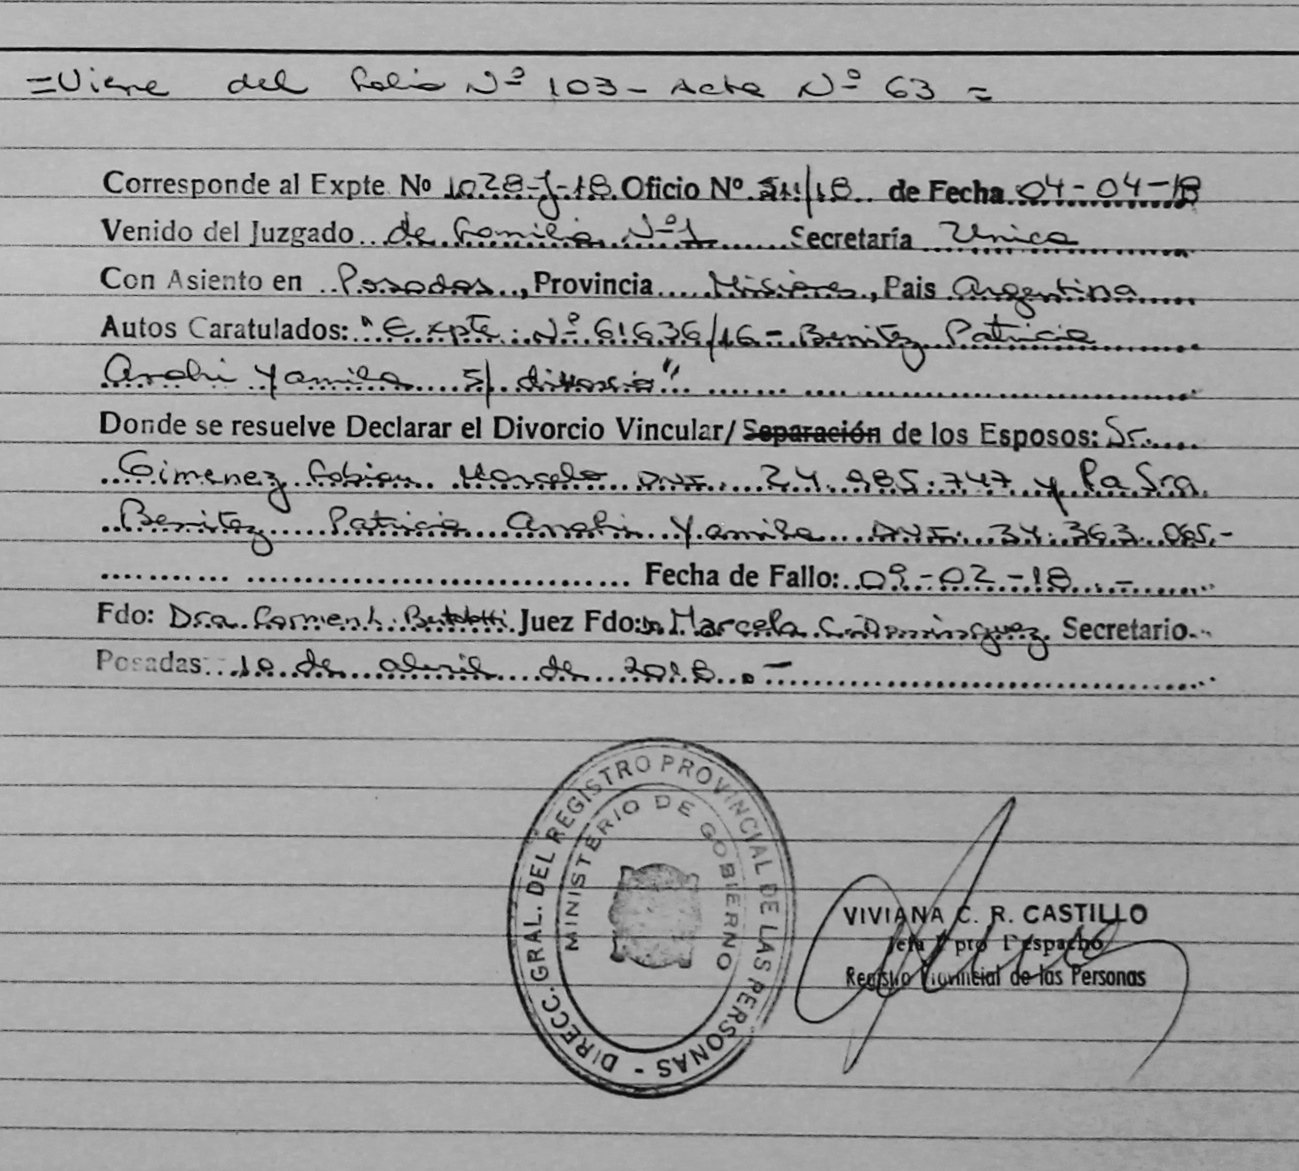 =Viene del folio Nº 103- Acta Nº 63 =
Corresponde al Expte Nº 1028-J-18 Oficio Nº 511/18 de Fecha 04-04-18
Venido del Juzgado de Familia Nº1 Secretaría Unica
Con Asiento en Posadas, Provincia Misiones, Pais Argentina
Autos Caratulados: "Expte. Nº 61636/16- Benitez Patricia
Anahi Yamila s/ divorcio"
Donde se resuelve Declarar el Divorcio Vincular/ Separación de los Esposos: Sr.
Gimenez Fabian Marcelo DNI. 24.985.747 y la Sra.
Benitez Patricia Anahi Yamila DNI. 34.363.085.-
Fecha de Fallo: 09-02-18.-
Fdo: Dra. Carmen Juez Fdo: Marcela C. Dominguez Secretario
Posadas: 10 de abril de 2018.-
DIRECC. GRAL. DEL REGISTRO PROVINCIAL DE LAS PERSONAS -
MINISTERIO DE GOBIERNO
VIVIANA C. R. CASTILLO
Jefa Dpto Despacho
Registro Provincial de las Personas